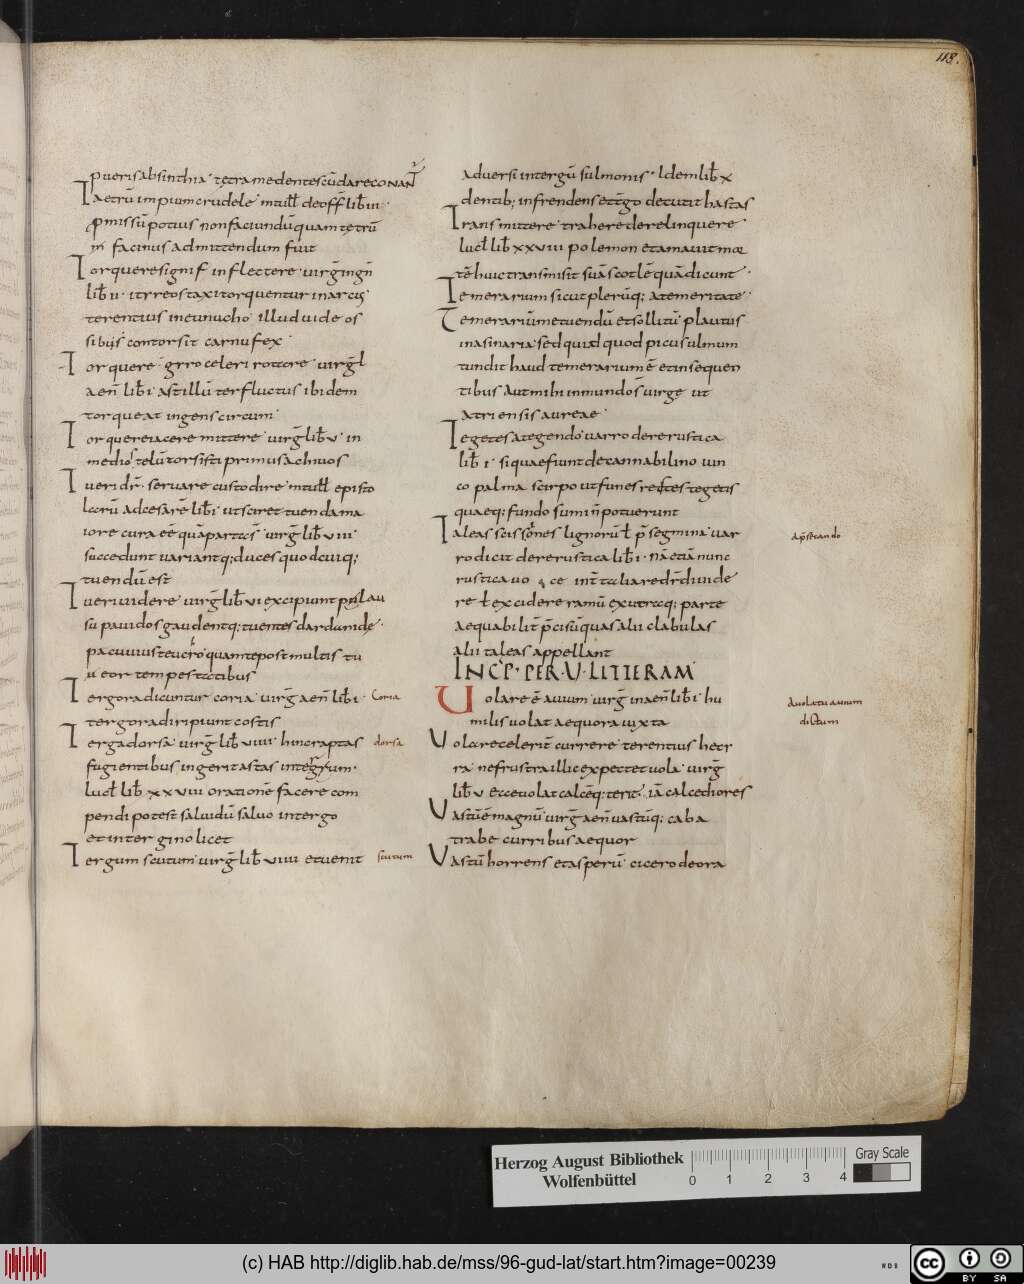 118.
pueris absinthia tetra medentes cũ dare conant
Taetrũ impium crudele m tull de off lib iii
p missũ potius non faciundũ quam tetrũ
in facinus admittendum fuit
Torquere signif inflectere virg in gn
lib ii it reos taxi torquentur in arcus
terentius in eunucho illud vide os
sibi ut contorsit carnufex
Torquere giro celeri rotare virgl
aen lib i ast illũ ter fluctus ibidem
torqueat ingens circum
Torquere iacere mittere virg lib v in
medios telũ torsisti primus achivos
Tueri dr servare custodire m tull episto
larũ ad cesarẽ lib i ut sciret tuenda ma
iore cura eẽ quã partas virg lib viiii
succedunt variantq; duces quod cuiq;
tuendũ est
Tueri videre virg lib vi excipiunt plau
su pavidos gaudentq; tuentes dardanide
pacuvius teucro quamte post multis tu
u eor tempestatibus
Tergora dicuntur coria virg aen lib i
Coria
tergora diripiunt costis
Terga dorsa virg lib viiii hinc raptas
dorsa
fugientibus ingerit astas intergum
lucel lib xxviii oratione facere com
pendi potest salvidũ salvo intergo
et inter gino licet
Tergum scutum virg lib viiii et venit
scutum
adversi in tergũ sulmonis Idem lib x
dentib; infrendens et tgo decutit hastas
Transmittere trahere derelinquere
lucel lib xxviii polemon et amavit mor
tẽ huic transmisit suã scolẽ quã dicunt
Temerarium sicut plerũq; a temeritate
Temerariũ metuendũ et sollitũ plautus
in asinaria sed quid quod picus ulmum
tundit haud temerarium ẽ et insequen
tibus Aut mihi in mundo s virge ut
atriensis aureae
Tegetes a tegendo varro de re rustica
lib i si quae fiunt de cannabi lino iun
co palma scirpo ut funes restes tegetis
quaeq; fundo sumi n potuerunt
Taleas scissiones lignorũ l p segmina var
a p secando
ro dicit de re rustica lib i nã etiã nunc
rustica vo ce int taliare dr dividere
re l excidere ramũ ex utraq; parte
aequabilit p cisũ quas alii clabulas
alii taleas appellant
INCP PER U LITTERAM
Uolare ẽ avium virg in aen lib i hu
A volatu avium
dictum
milis volat aequora iuxta
Volare celerit currere terentius hecy
ra ne frustra illic expectet vola virg
lib v ecce volat calcẽq; terit iã calce diores
Vastũ ẽ magnũ virg aen vastũq; cava
trabe curribus aequor
Vastũ horrens et asperũ cicero de ora
Herzog August Bibliothek
Wolfenbüttel
0 1 2 3 4
Gray Scale
(c) HAB http://diglib.hab.de/mss/96-gud-lat/start.htm?image=00239
WDB
cc BY SA